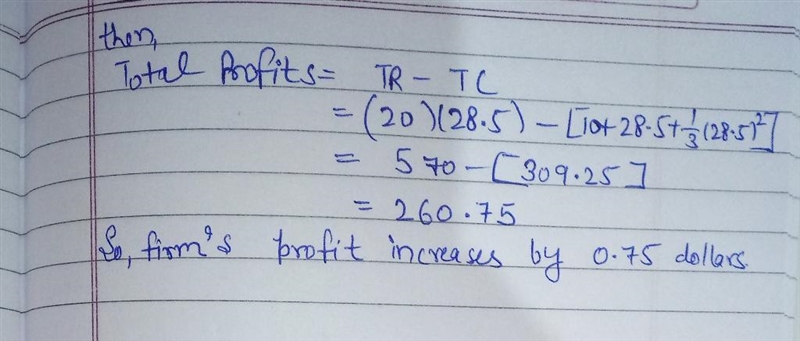 then,
Total Profits = TR - TC
= (20)(28.5) - [10+28.5+1/3(28.5)²]
= 570 - [309.25]
= 260.75
So, firm's profit increases by 0.75 dollars.